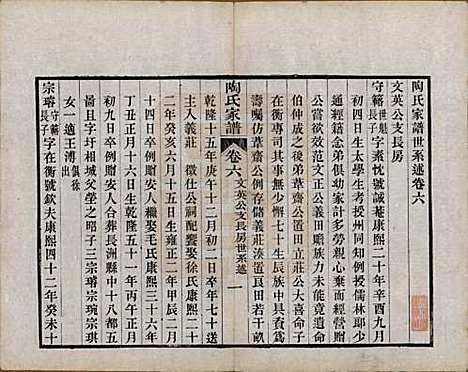 陶氏家譜世系述卷六
文英公支長房
守範 世魁長子 字素忱號誠菴康熙二十年辛酉九月
初四日生太學生考授州同知例授儒林郎少
通經籍念弟俱幼家計多勞親心棄而經營贈
公嘗欲效范文正公義田贍族力未能竟遺命
伯仲成之後弟葦齋公置田立莊公大喜命子
在衡專司其事無少懈七十生辰族中具賓爲
壽囑仿葦齋公例存儲義莊湊置良田若干畝
陶氏家譜 卷六 文英公支長房世系述 一
乾隆十五年庚午十二月初二日卒年七十送
主入義莊 徵仕公祠配竇娶徐氏康熙二十
二年癸亥六月十五日生雍正二年甲辰二月
十四日卒贈安人繼娶毛氏康熙三十六年
丁丑正月十六日生乾隆五十一年丙午正月
初九日卒例贈安人合葬長洲縣中十八都五
啚且字圩相城父塋之昭子三宗璿宗琬宗琪
女一適王溥 俱徐出
宗璿 守範長子 字在衡號欽夫康熙四十二年癸未十